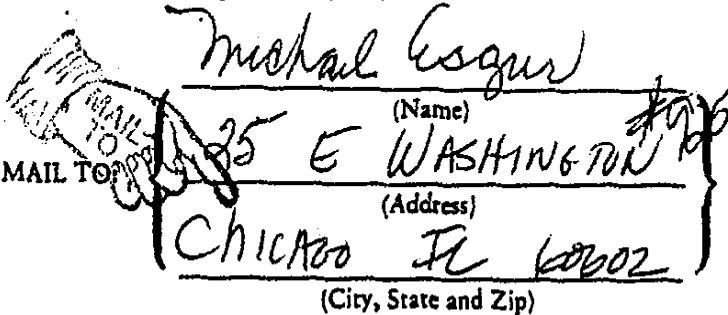 Michael Esgur
(Name)
MAIL TO
MAIL TO 25 E WASHINGTON
(Address)
CHICAGO IL 60602
(City, State and Zip)